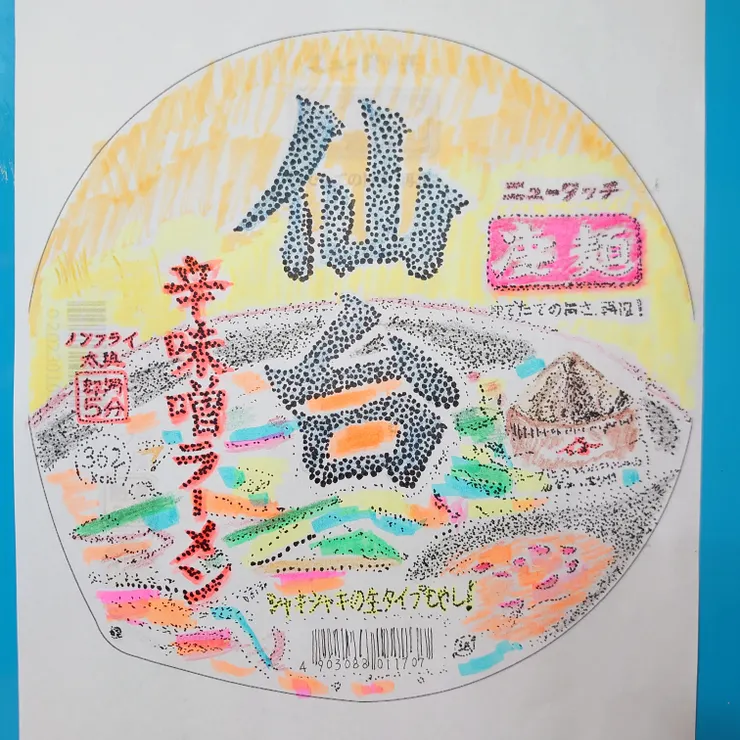 仙台
ニュータッチ
凄麺
ゆでたての旨さ、再現!
辛味噌ラーメン
ノンフライ
太麺
5分
362
シャキシャキの生タイプもやし!
4 903088 011707